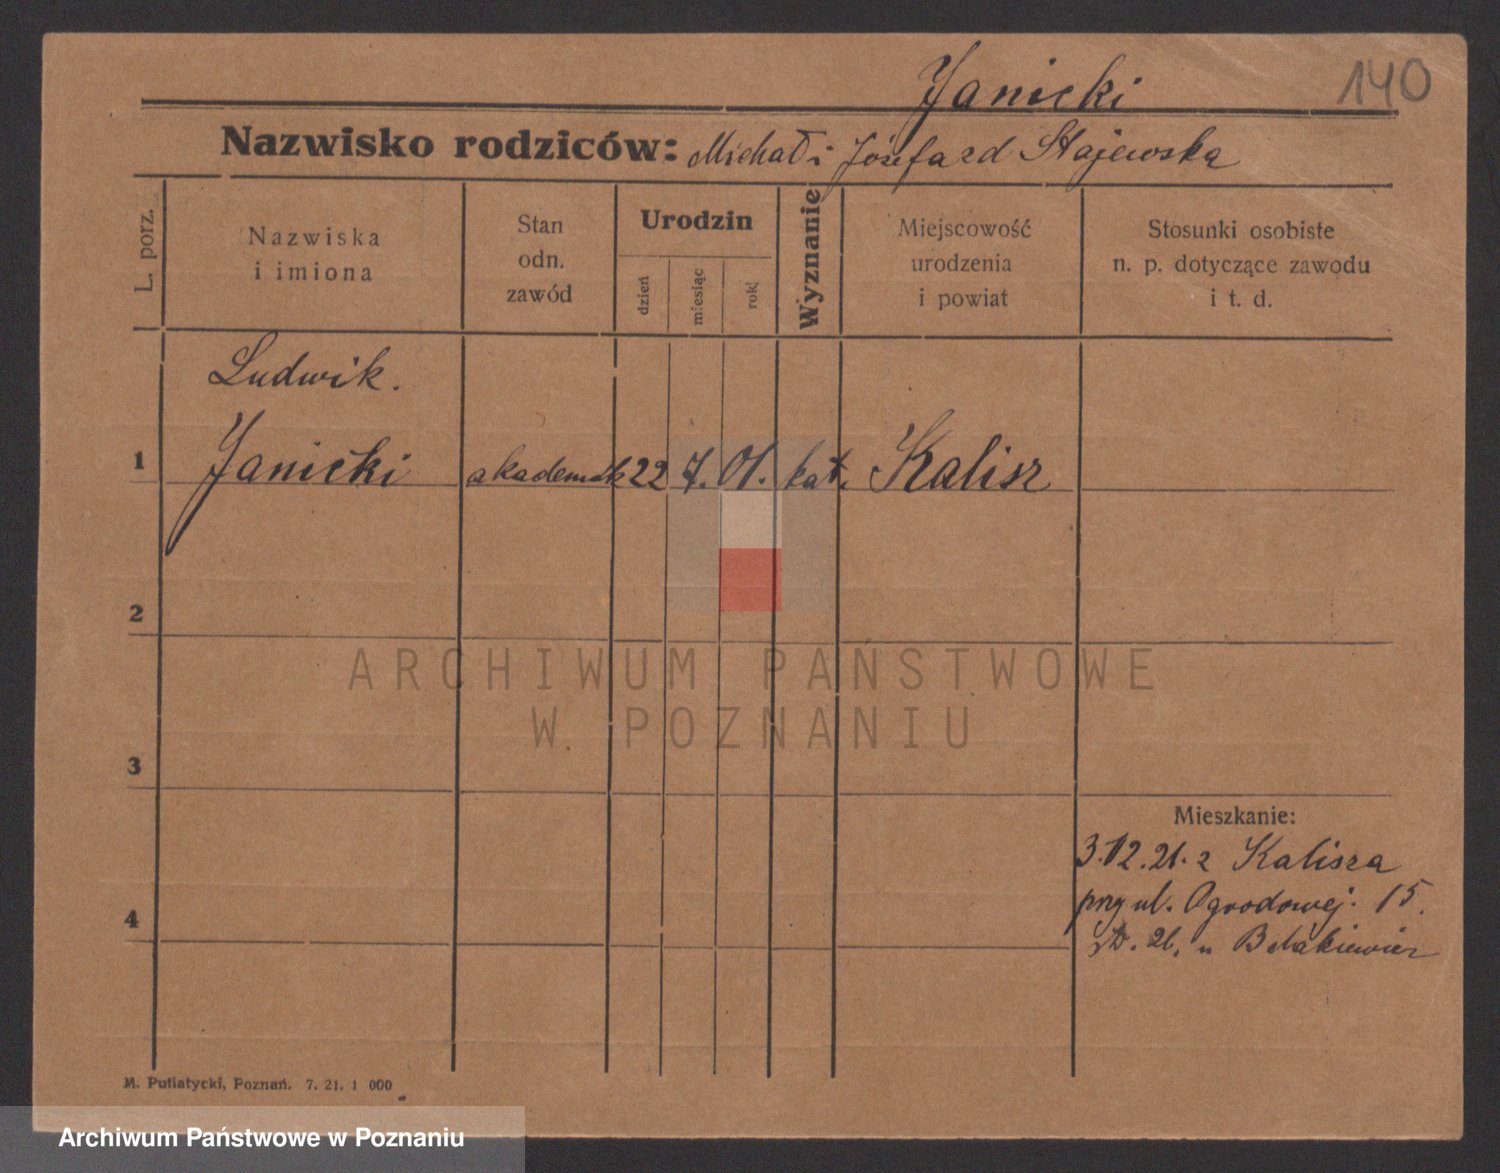 Janicki
140
Nazwisko rodziców: Michał i Józefa zd Stajewska
L. porz.
Nazwiska
i imiona
Stan
odn.
zawód
Urodzin
dzień
miesiąc
rok
Wyznanie
Miejscowość
urodzenia
i powiat
Stosunki osobiste
n. p. dotyczące zawodu
i t. d.
Ludwik.
1 Janicki akademik 22 7. 01. kat. Kalisz
2
ARCHIWUM PAŃSTWOWE
W POZNANIU
3
Mieszkanie:
3.12.21. z Kalisza
przy ul. Ogrodowej. 15.
4
M. Putiatycki, Poznań. 7. 21. 1 000
Archiwum Państwowe w Poznaniu